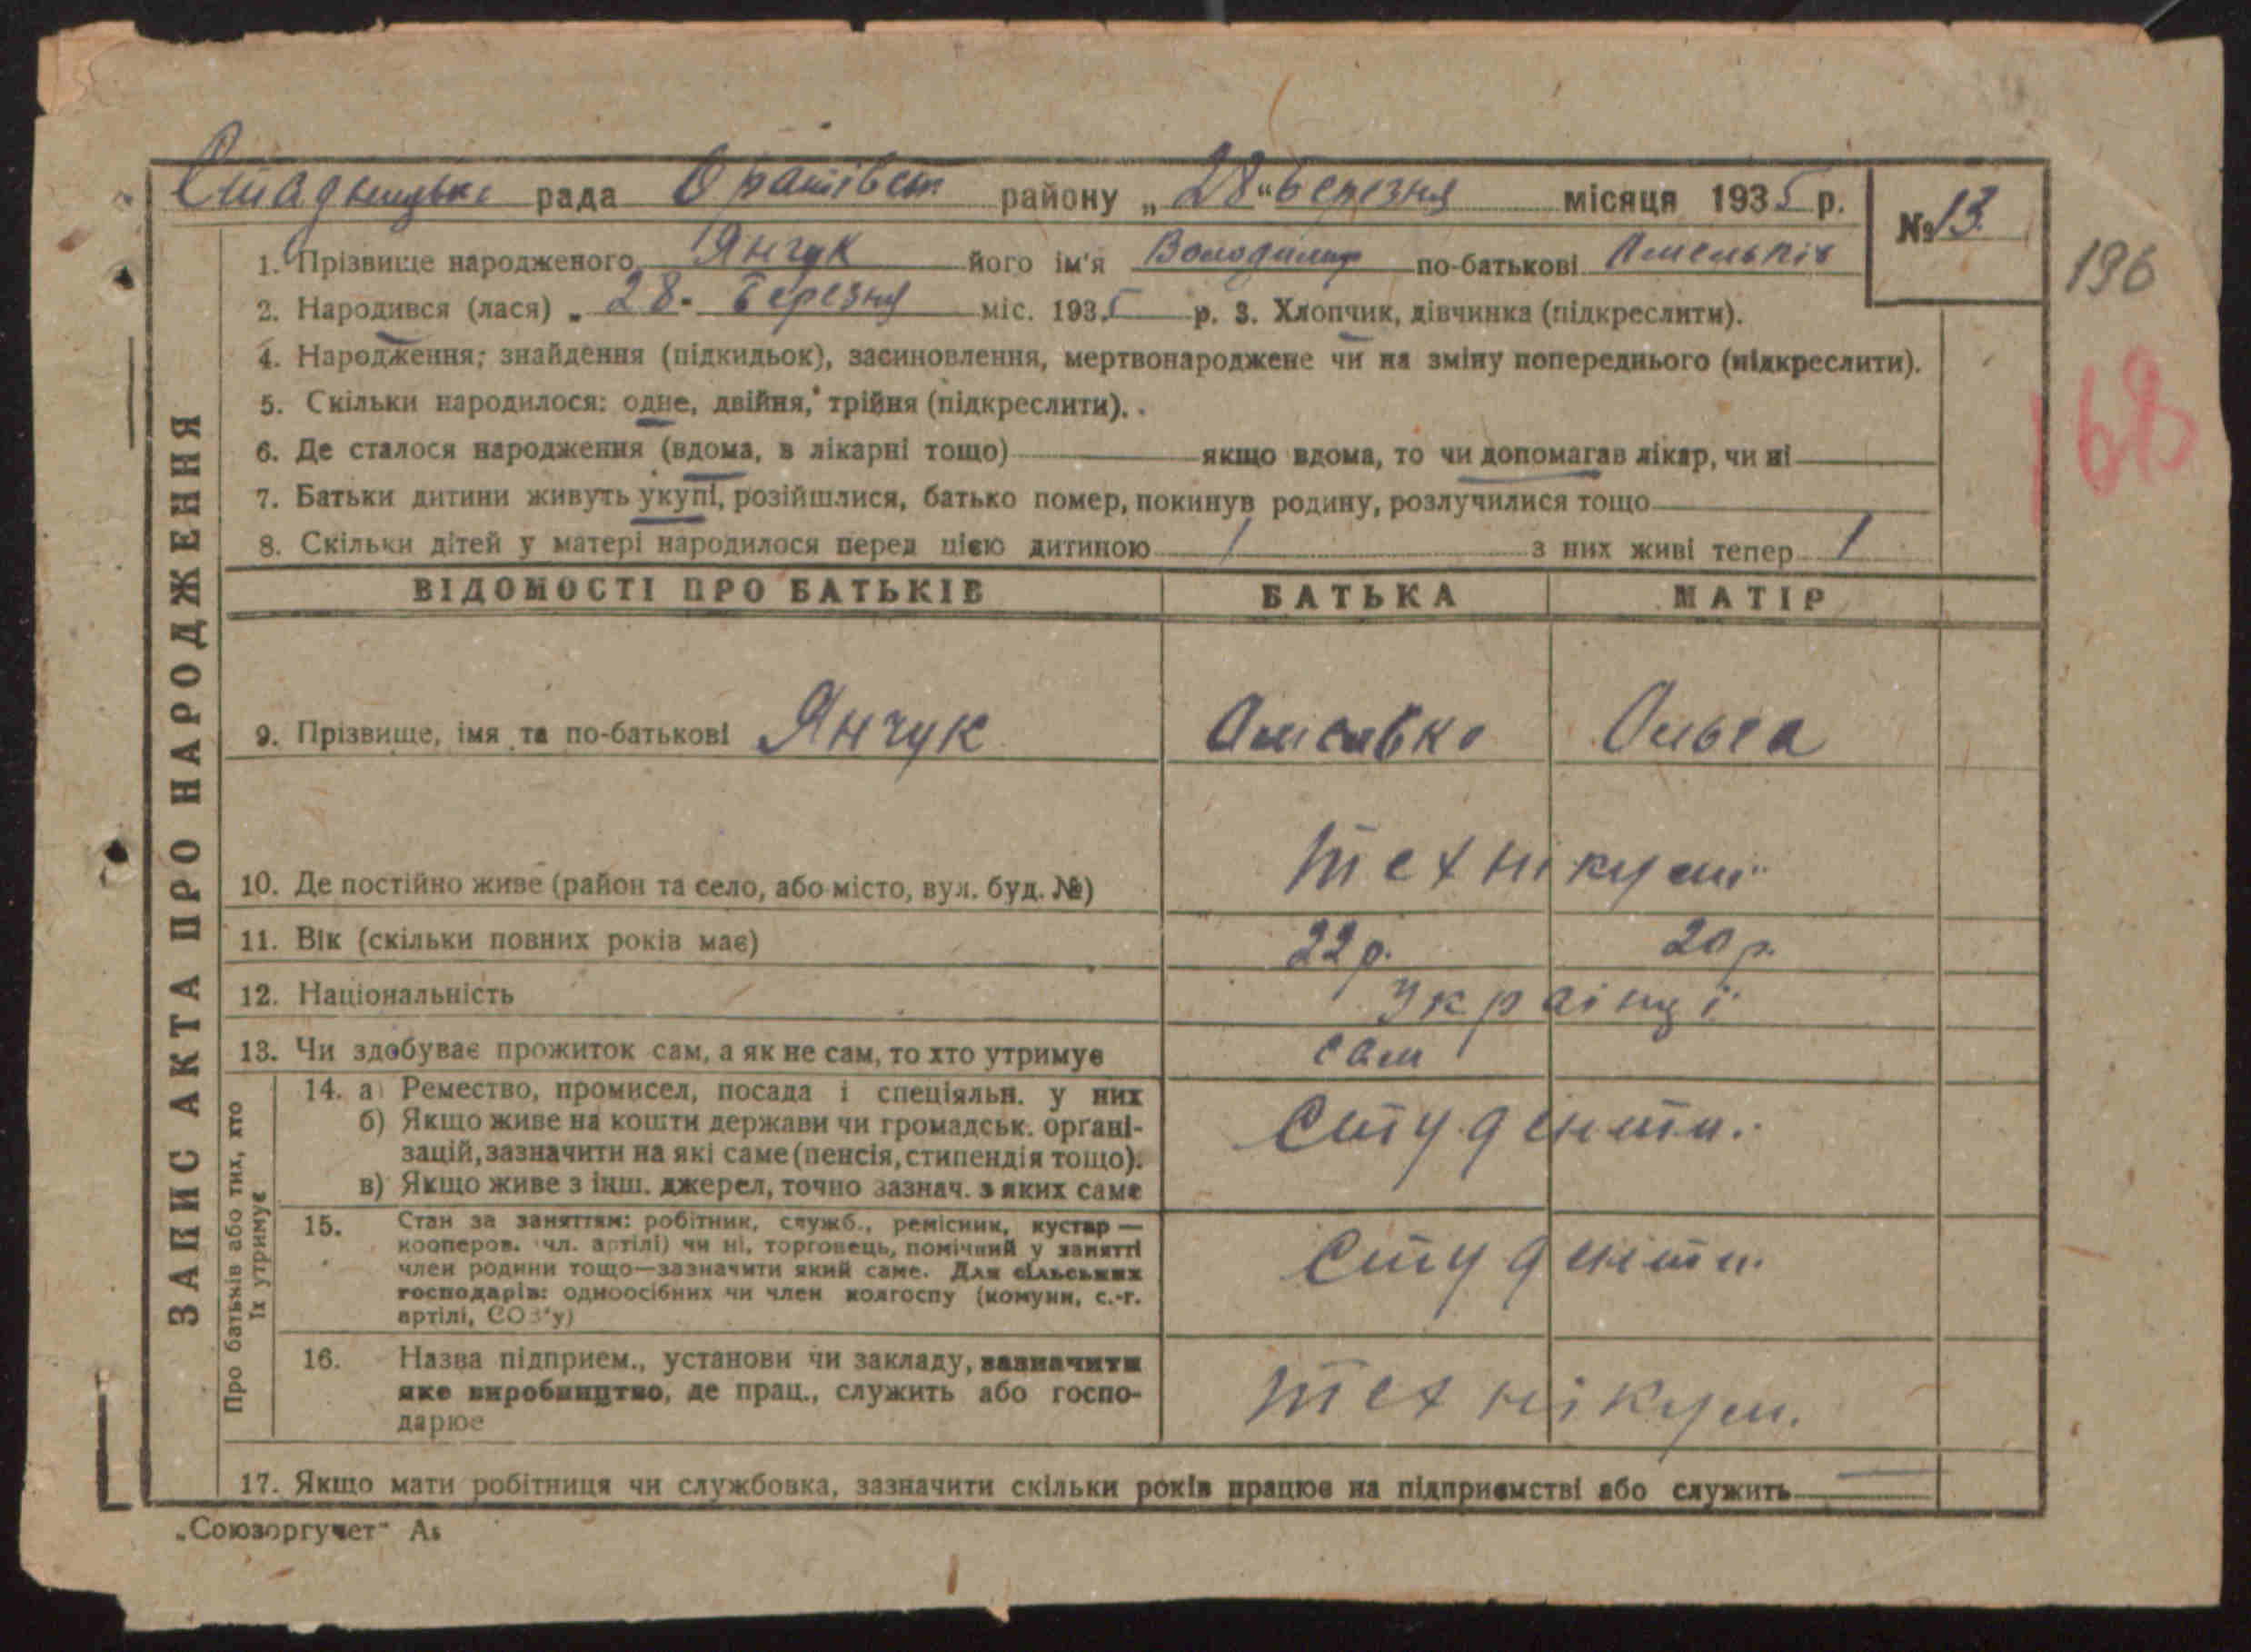 рада Оратівськ району „28“ березня місяця 1935 р.
№ 13
1. Прізвище народженого Янчук його ім'я Володимир по-батькові Омельків
196
2. Народився (лася) „ 28 " березня міс. 1935 р. 3. Хлопчик, дівчинка (підкреслити).
4. Народження; знайдення (підкидьок), засиновлення, мертвонароджене чи на зміну попереднього (підкреслити).
5. Скільки народилося: одне, двійня, трійня (підкреслити).
168
6. Де сталося народження (вдома, в лікарні тощо) якщо вдома, то чи допомагав лікар, чи ні
7. Батьки дитини живуть укупі, розійшлися, батько помер, покинув родину, розлучилися тощо
8. Скільки дітей у матері народилося перед цією дитиною 1 з них живі тепер 1
ЗАПИС АКТА ПРО НАРОДЖЕННЯ
ВІДОМОСТІ ПРО БАТЬКІВ БАТЬКА МАТІР
9. Прізвище, імя та по-батькові Янчук Омелько Ольга
10. Де постійно живе (район та село, або місто, вул. буд. №) Технікумі
11. Вік (скільки повних років має) 22 р. 20 р.
12. Національність Українці
13. Чи здобуває прожиток сам, а як не сам, то хто утримує сам
Про батьків або тих, хто їх утримує
14. а) Ремество, промисел, посада і спеціяльн. у них
б) Якщо живе на кошти держави чи громадськ. органі-
зацій, зазначити на які саме (пенсія, стипендія тощо).
в) Якщо живе з інш. джерел, точно зазнач. з яких саме
Студенти.
15. Стан за заняттям: робітник, служб., ремісник, кустар —
кооперов. чл. артілі) чи ні, торговець, помічний у занятті
член родини тощо—зазначити який саме. Для сільських
господарів: одноосібних чи член колгоспу (комуни, с.-г.
артілі, СОЗ'у)
Студенти.
16. Назва підприєм., установи чи закладу, зазначити
яке виробництво, де прац., служить або госпо-
дарює
Технікум.
17. Якщо мати робітниця чи службовка, зазначити скільки років працює на підприємстві або служить —
„Союзоргучет“